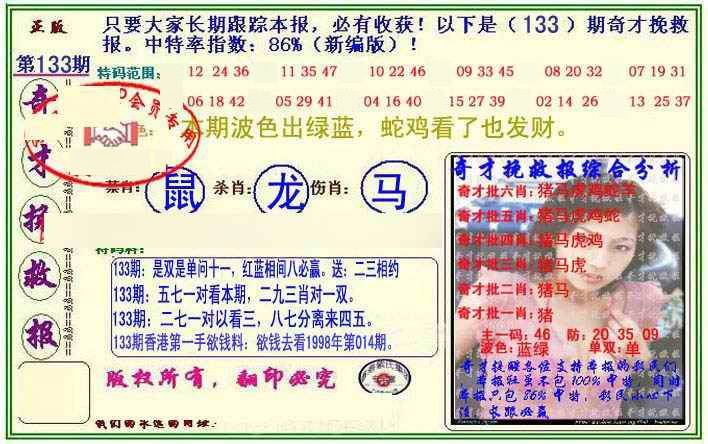 正版
只要大家长期跟踪本报，必有收获！以下是（133）期奇才挽救
报。中特率指数：86%（新编版）！
第133期
特码范围：
12 24 36 11 35 47 10 22 46 09 33 45 08 20 32 07 19 31
06 18 42 05 29 41 04 16 40 15 27 39 02 14 26 13 25 37
会员专用
色：本期波色出绿蓝，蛇鸡看了也发财。
奇才挽救报
禁肖：鼠 杀肖：龙 伤肖：马
133期：是双是单问十一，红蓝相间八必赢。送：二三相约
133期：五七一对看本期，二九三肖对一双。
133期：二七一对以看三，八七分离来四五。
133期香港第一手欲钱料：欲钱去看1998年第014期。
版权所有，翻印必究
奇才挽救报综合分析
奇才批六肖：猪马虎鸡蛇羊
奇才批五肖：猪马虎鸡蛇
奇才批四肖：猪马虎鸡
奇才批三肖：猪马虎
奇才批二肖：猪马
奇才批一肖：猪
主一码：46 防：20 35 09
波色：蓝绿 单双：单
奇才提醒各位支持本报的彩民们
本报狂虽不包100%中特，但时
本报只包86%中特，彩民小心下
注，长跟必赢